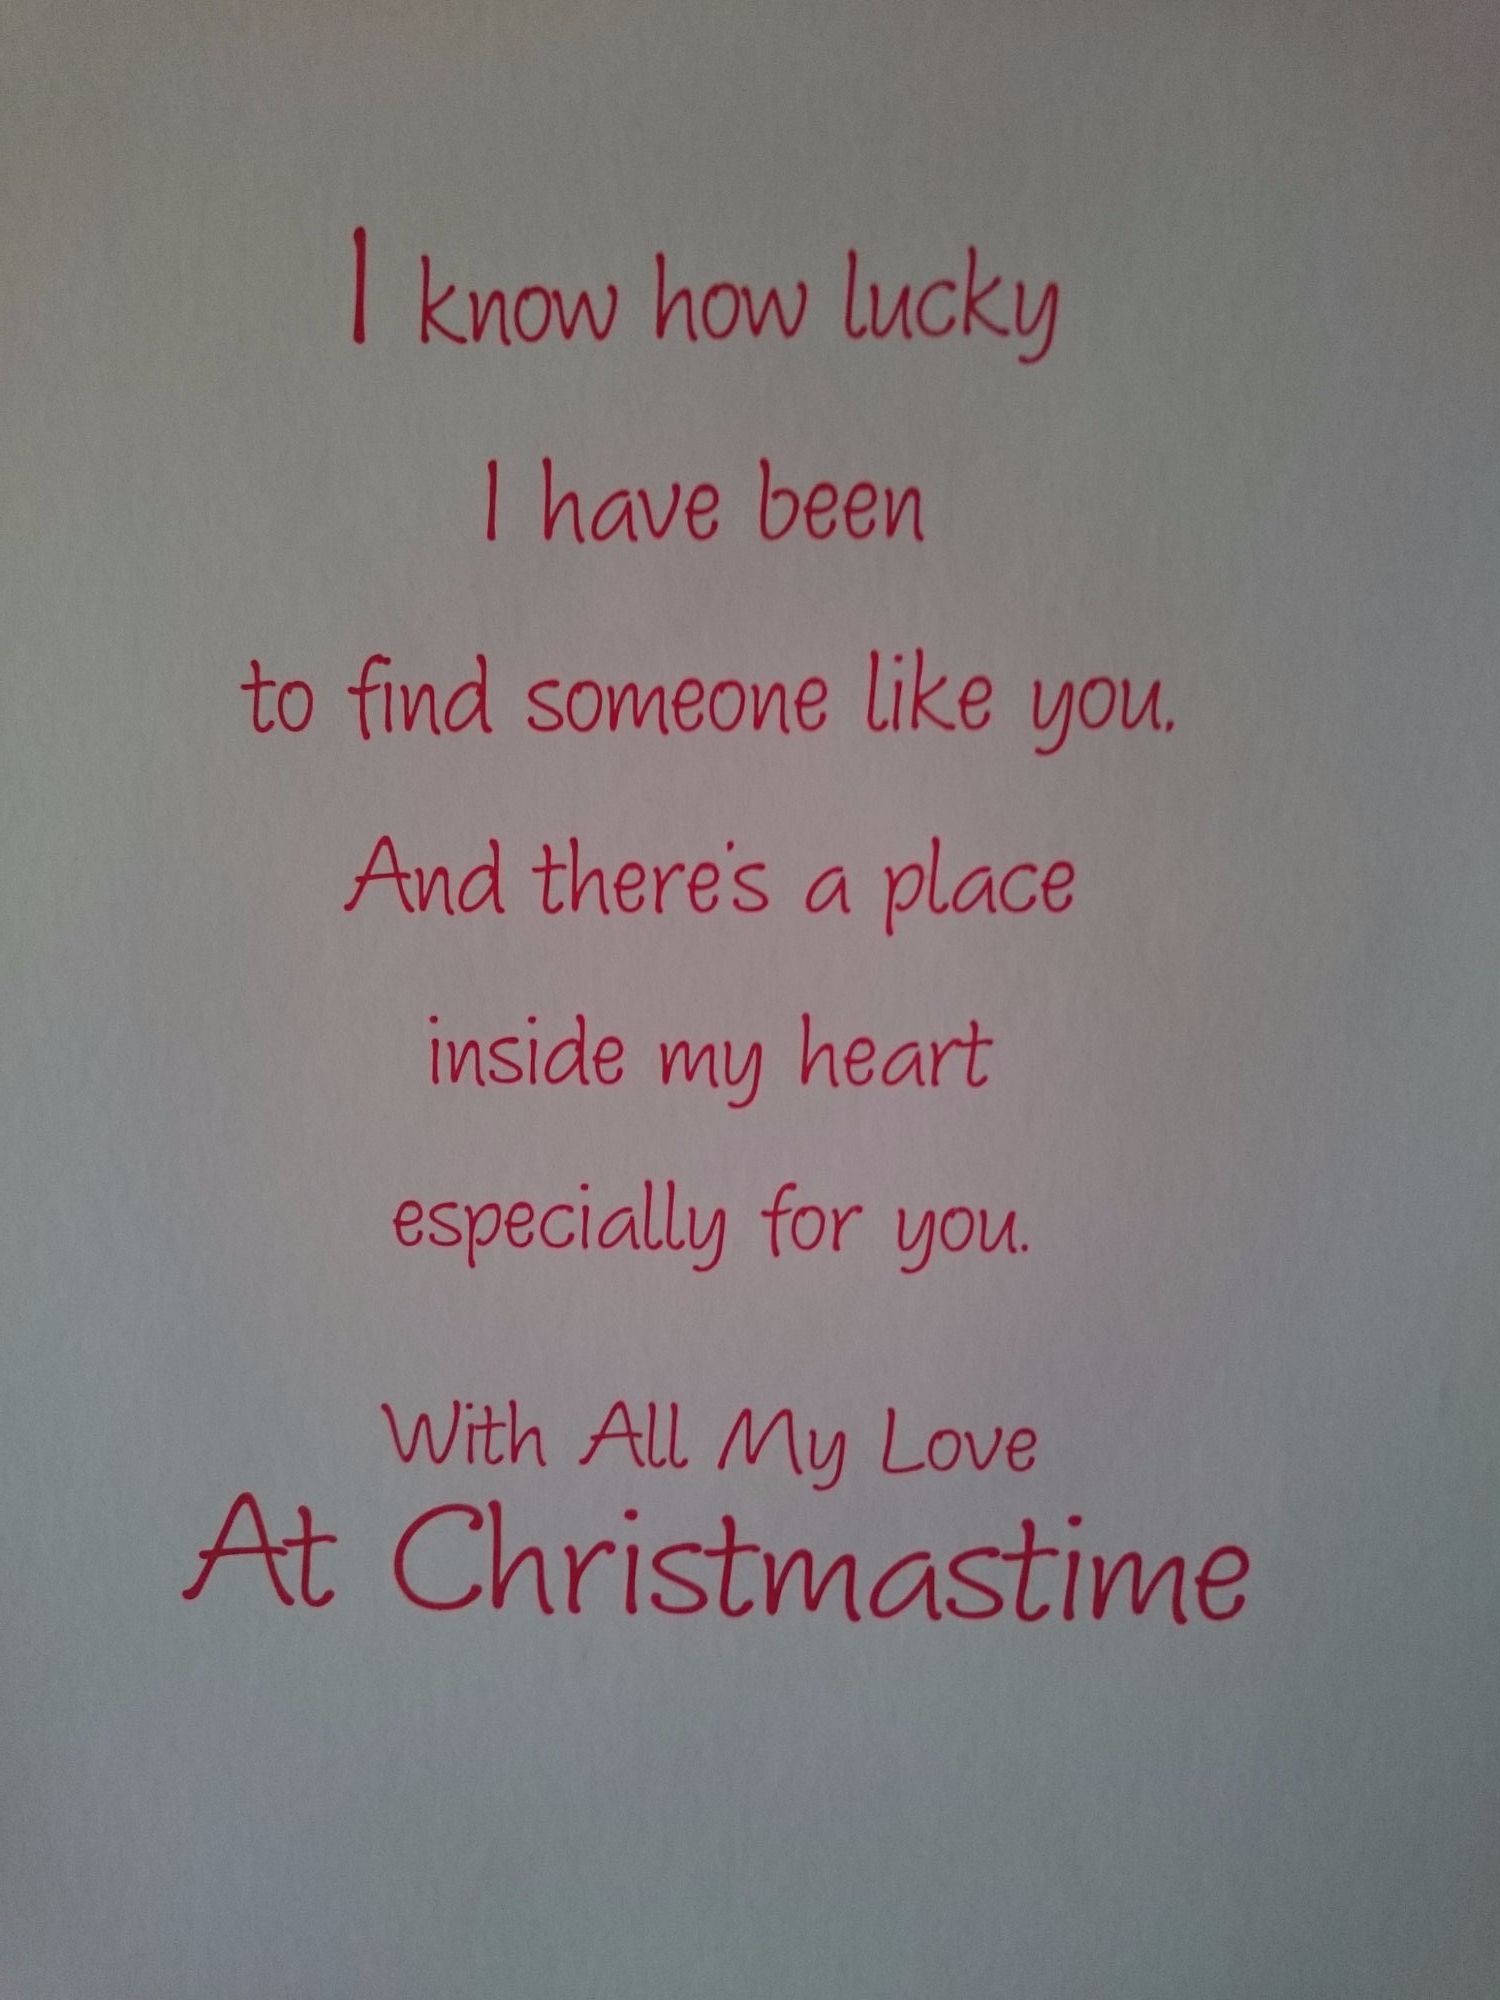 I know how lucky
I have been
to find someone like you.
And there's a place
inside my heart
especially for you.
With All My Love
At Christmastime